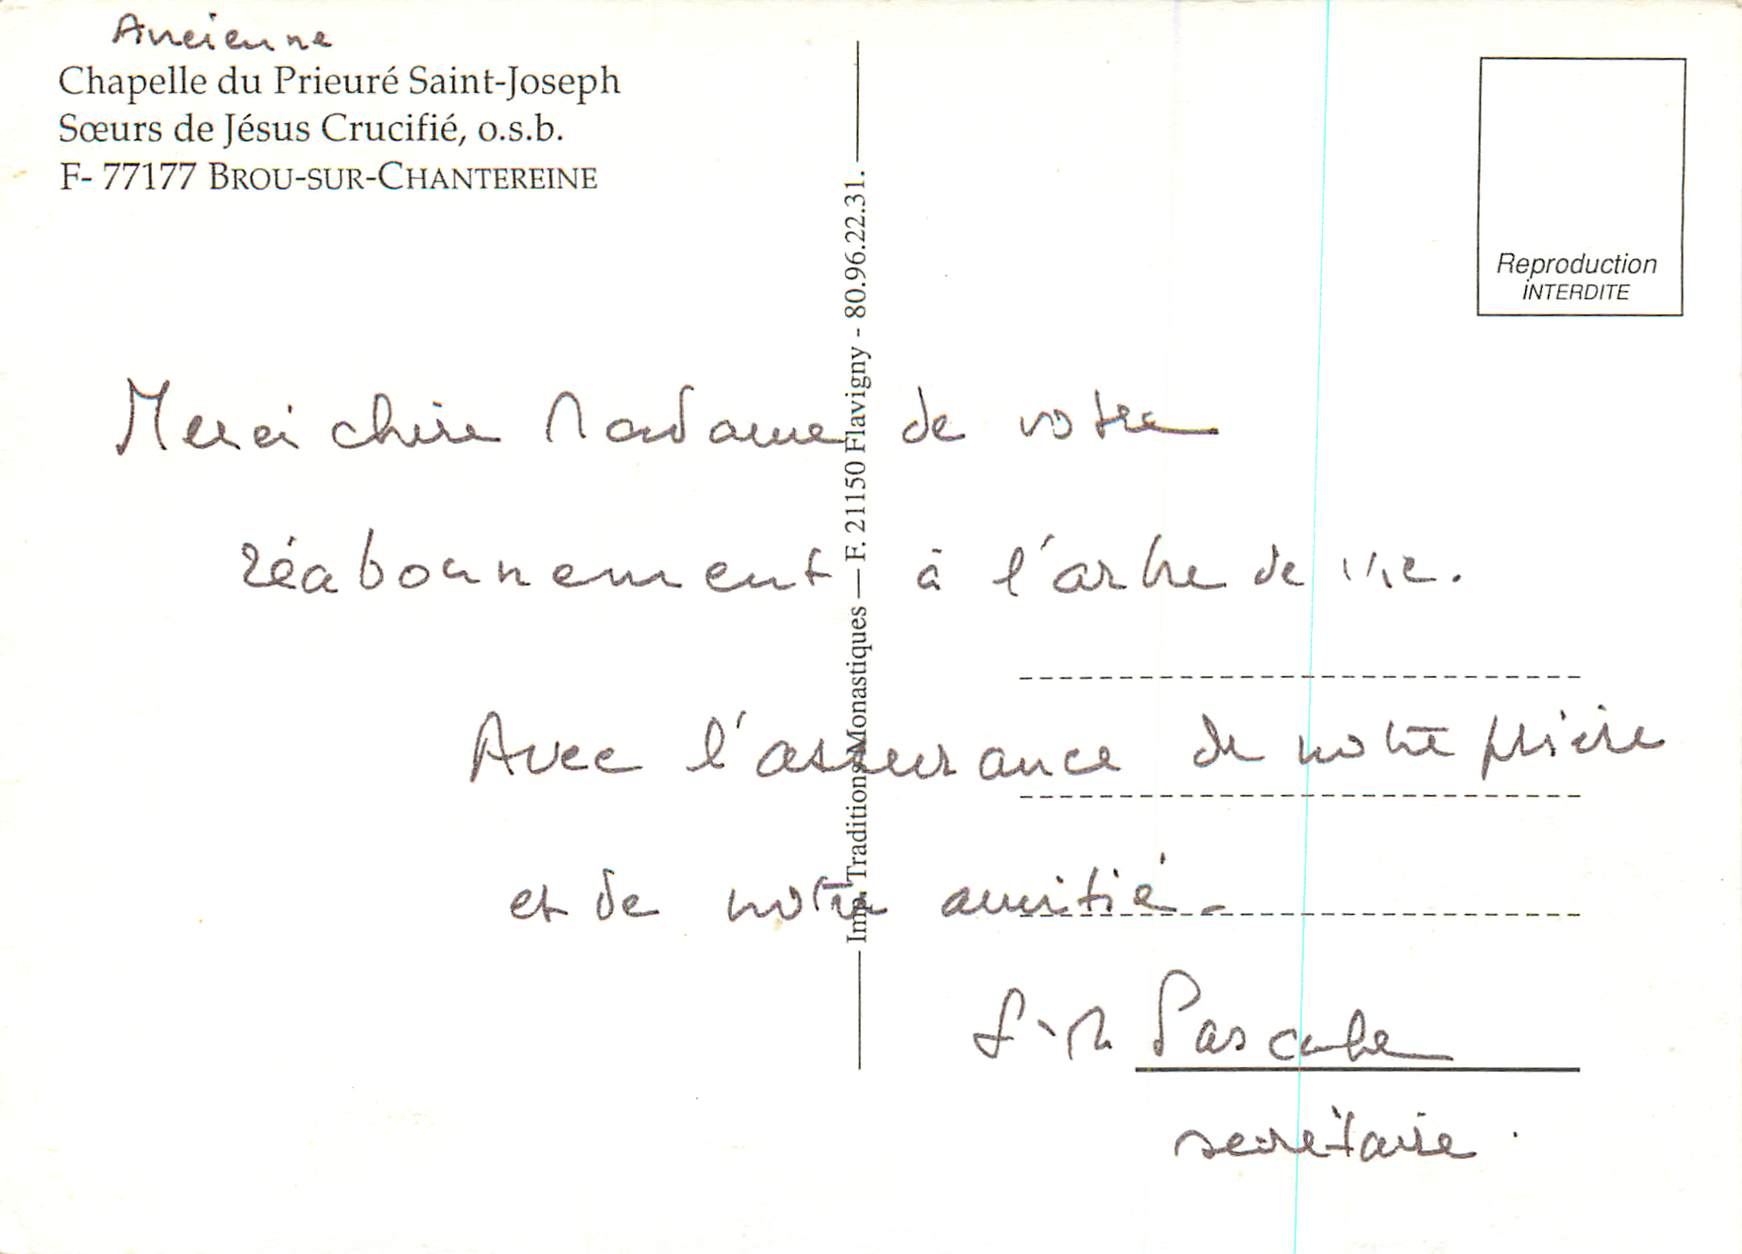 Ancienne
Chapelle du Prieuré Saint-Joseph
Sœurs de Jésus Crucifié, o.s.b.
F- 77177 BROU-SUR-CHANTEREINE
Imp. Traditions Monastiques — F. 21150 Flavigny - 80.96.22.31.
Reproduction
INTERDITE
Merci chère Madame de votre
réabonnement à l'arbre de vie.
Avec l'assurance de notre prière
et de notre amitié.
Pascale
secrétaire.